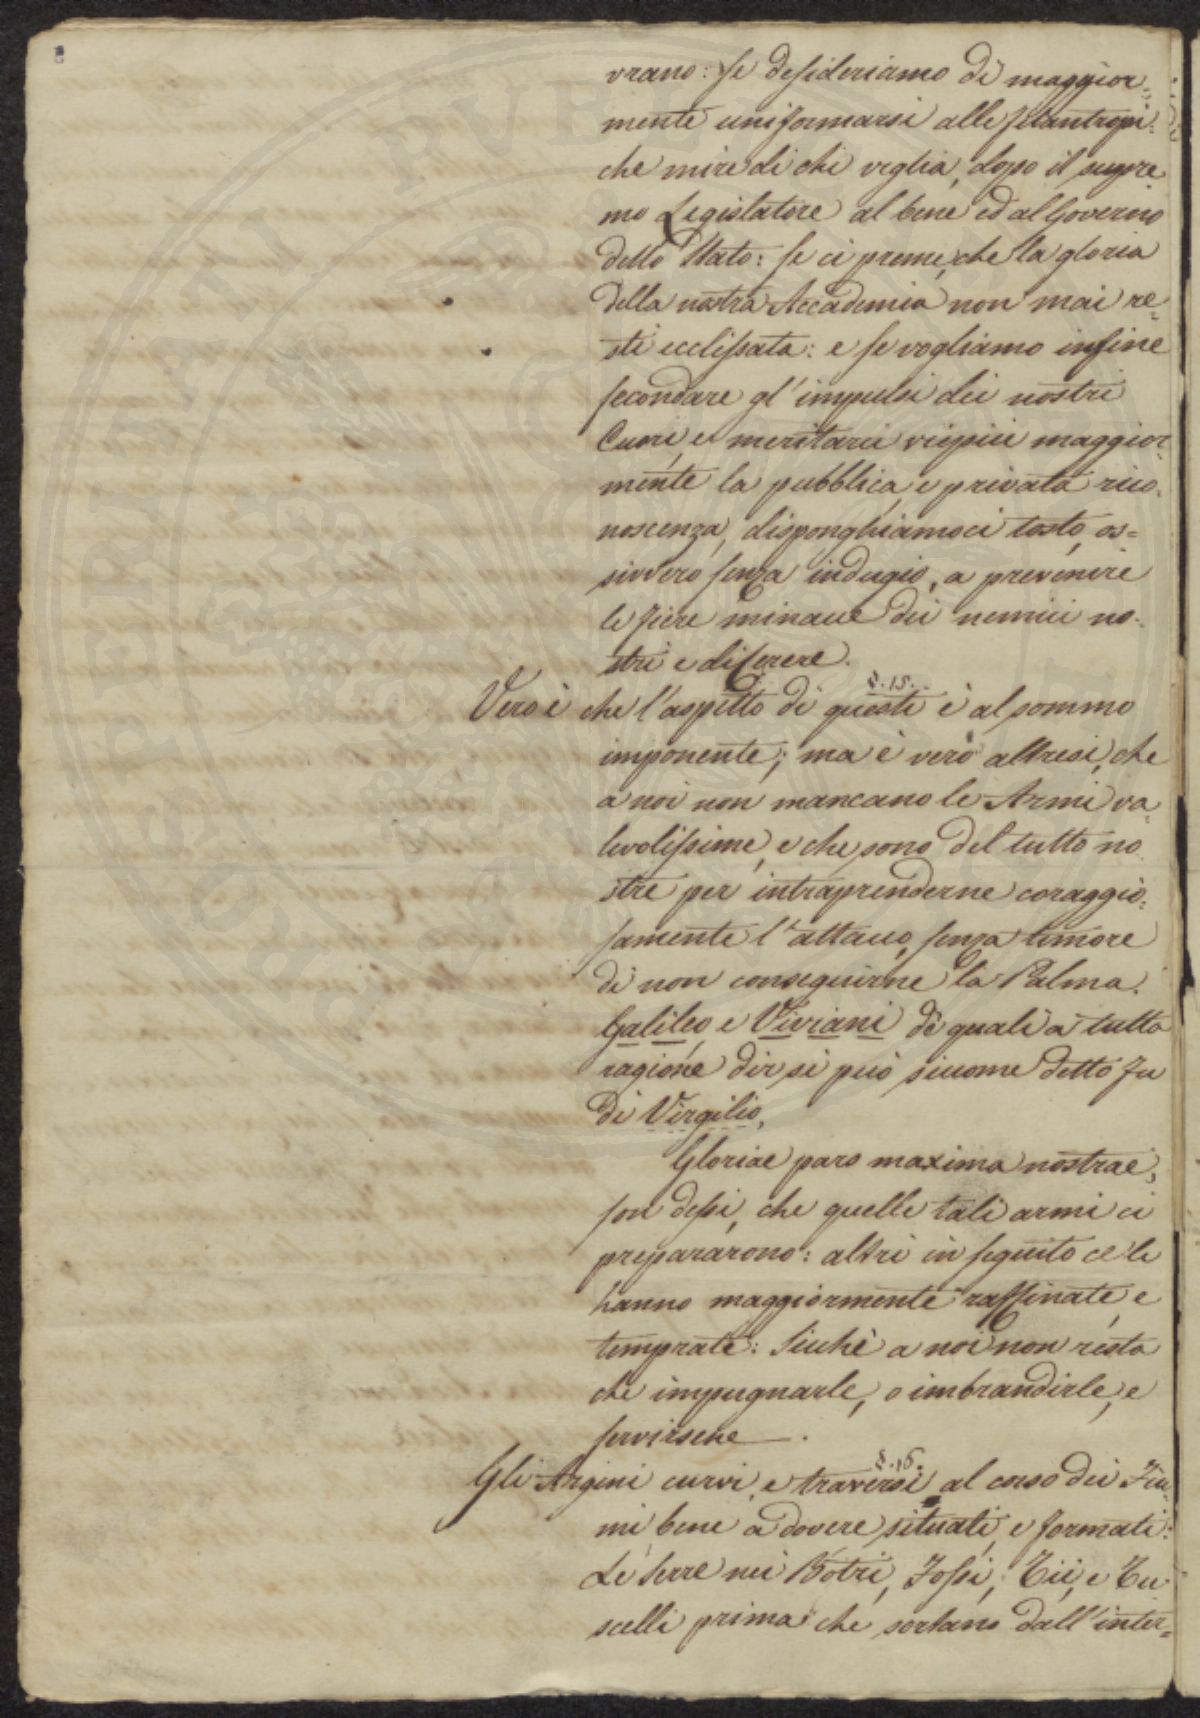 vrano: se desideriamo di maggior-
mente uniformarsi alle filantropi-
che mire di chi veglia, dopo il supre
mo Legislatore al bene ed al Governo
dello Stato: se ci preme, che la gloria
della nostra Accademia non mai re-
sti ecclissata: e se vogliamo infine
secondare gl'impulsi dei nostri
Cuori, e meritarci viepiù maggior-
mente la pubblica, e privata rico-
noscenza, disponghiamoci tosto, os=
sivvero senza indugio, a prevenire
le fiere minacce dei nemici no-
stri e di Cerere.
§. 15.
Vero è che l'aspetto di questi è al sommo
imponente; ma è vero altresi, che
a noi non mancano le Armi va-
levolissime, e che sono del tutto no
stre per intraprenderne coraggio-
samente l'attacco, senza timore
di non conseguirne la Palma.
Galileo, e Viviani di quali a tutta
ragione dir si può siccome detto fu
di Virgilio,
Gloriae pars maxima nostrae,
son dessi, che quelle tali armi ci
prepararono: altri in seguito ce le
hanno maggiormente raffinate, e
temprate: Sicchè a noi non resta
che impugnarle, o imbrandirle, e
servirsene.
§. 16.
Gli Argini curvi, e traversi al corso dei Fiu-
mi, bene a dovere situati, e formati:
Le Serre nei Botri, Fossi, Rii, e Ru
scelli prima che sortano dall'inter-